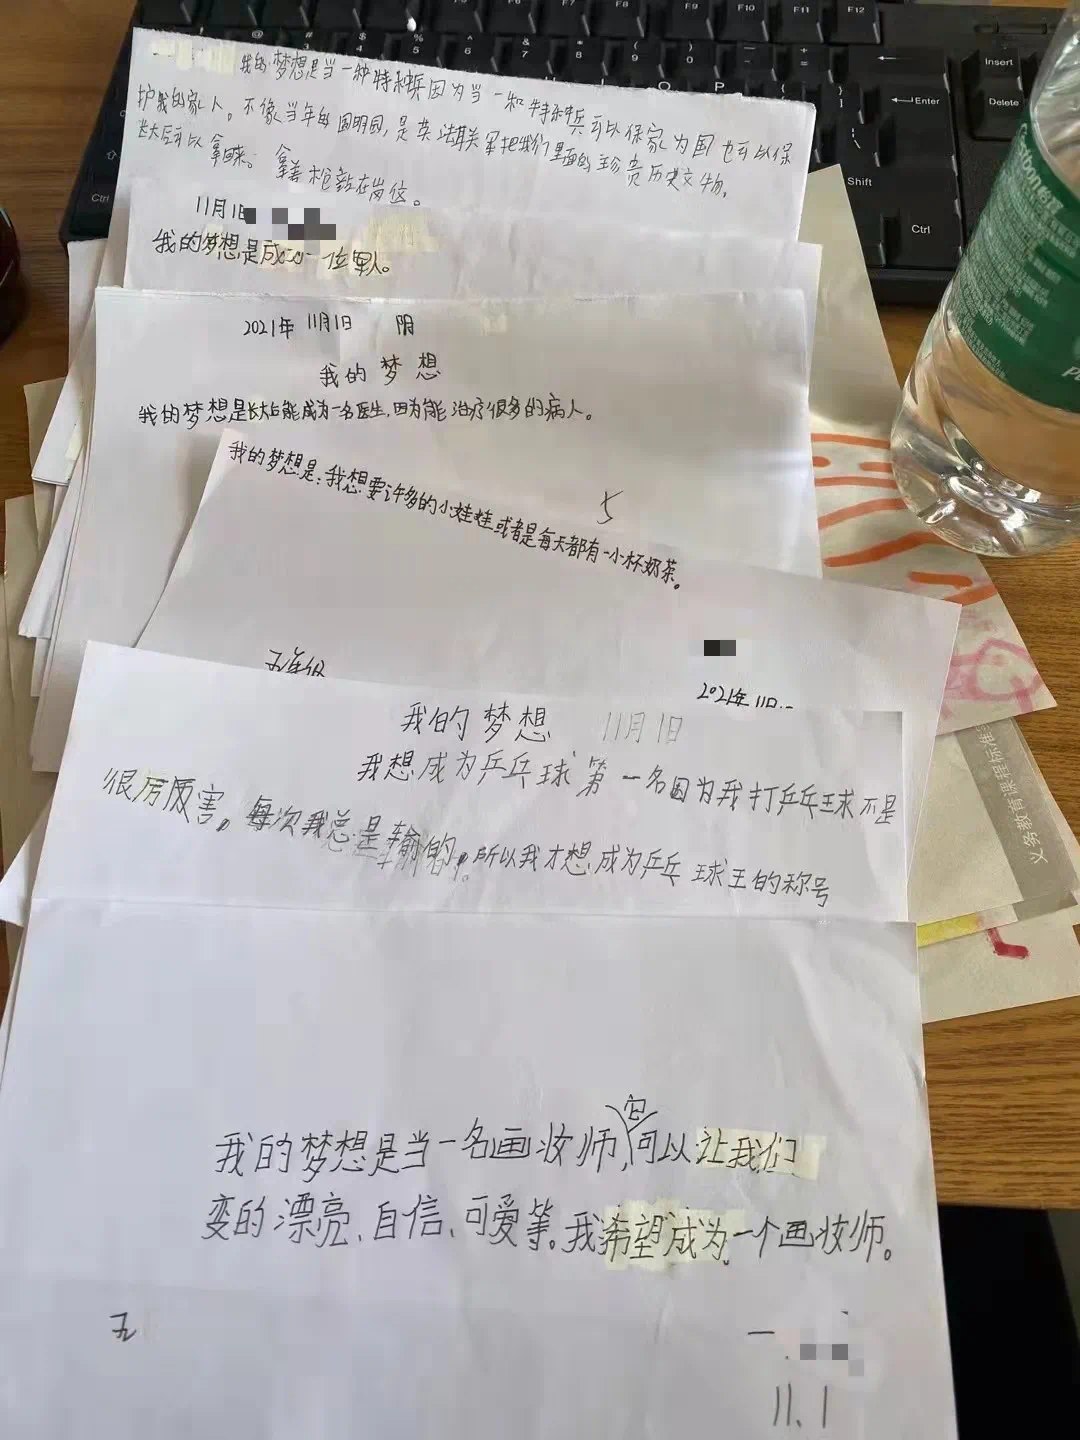 F7
F8
F9
F10
F11
F12
Insert
Enter
Delete
Shift
Ctrl
Ctrl
我的梦想是当一种特种兵因为当一和特种兵可以保家为国也可以保
护我的家人。不像当年的圆明园,是英法联军把我们里面的珍贵历史文物,
长大后可以拿回来。拿着枪站在岗位。
11月1日
我的梦想是成为一位军人。
2021年 11月1日 阴
我的梦想
我的梦想是长大后能成为一名医生,因为能治疗很多的病人。
我的梦想是:我想要许多的小娃娃或者是每天都有一小杯奶茶。
5
五年级
2021年11月
我的梦想 11月1日
我想成为乒乓球第一名因为我打乒乓球不是
很厉害。每次我总是输的,所以我才想成为乒乓球王的称号
义务教育课程标准
我的梦想是当一名画妆师,它可以让我们
变的漂亮、自信、可爱等。我希望成为一个画妆师。
五
11、1